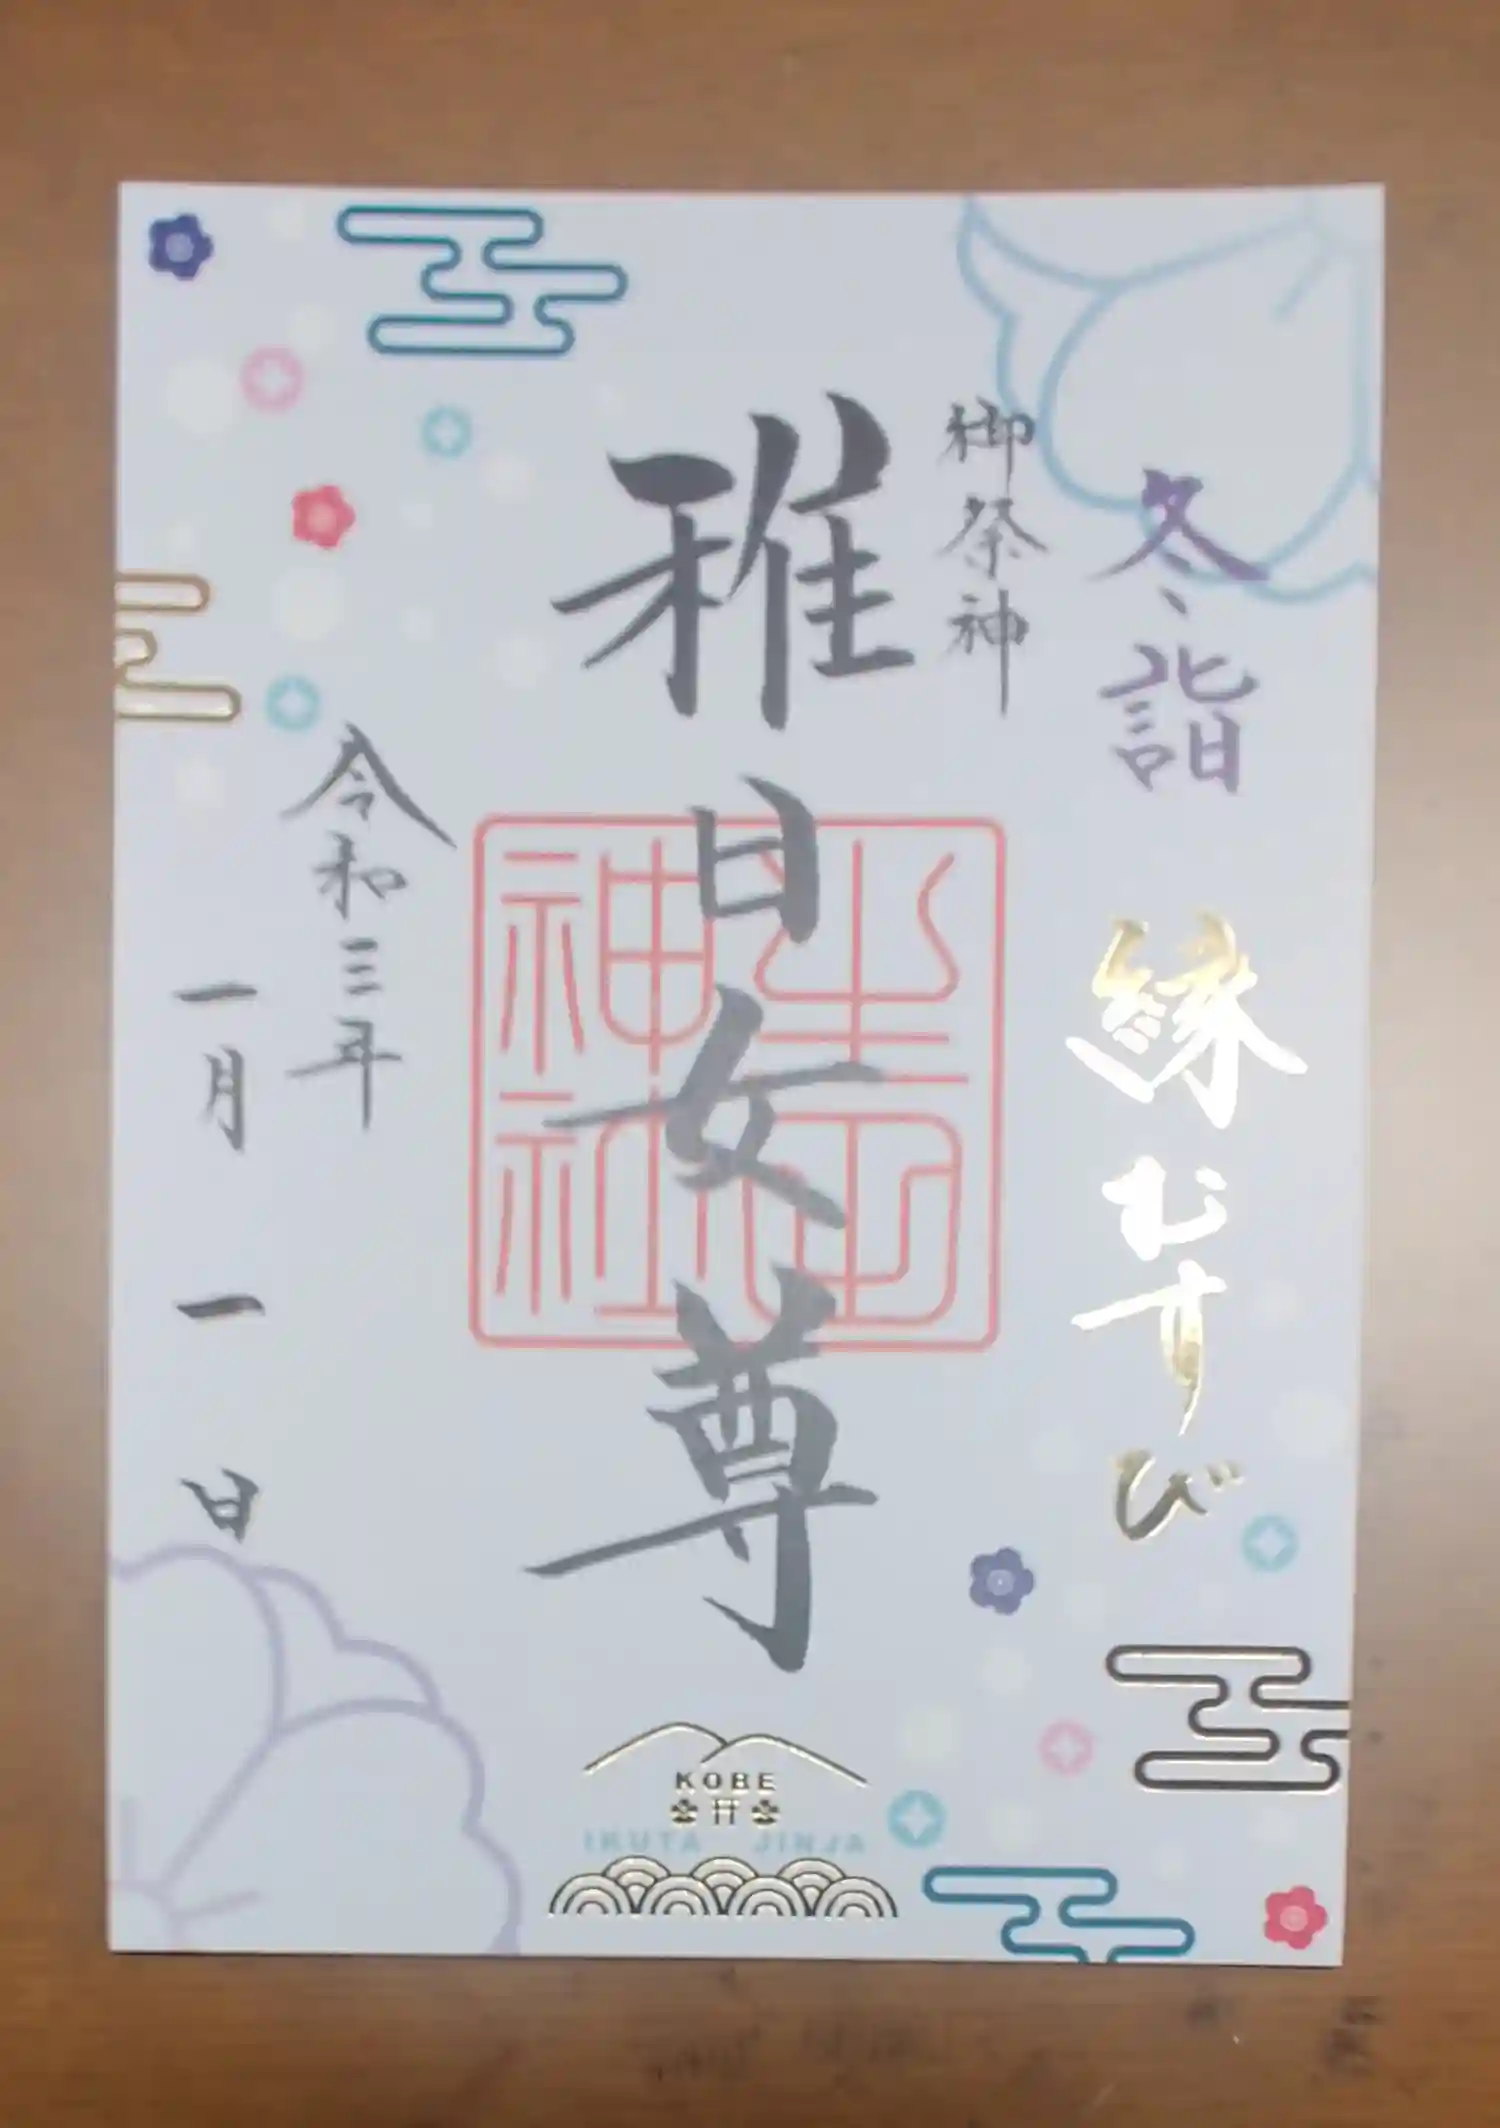 冬詣
縁むすび
御祭神
稚日女尊
生田神社
令和三年
一月一日
KOBE
IKUTA JINJA